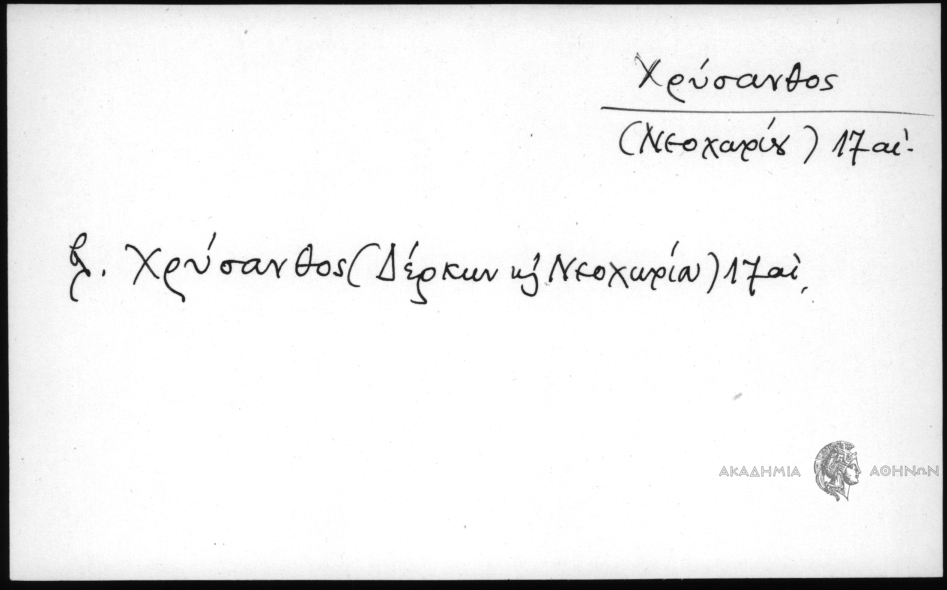 Χρύσανθος
(Νεοχωρίου) 17 αἰ.
βλ. Χρύσανθος (Δέρκων κ Νεοχωρίου) 17 αἰ.
ΑΚΑΔΗΜΙΑ ΑΘΗΝΩΝ